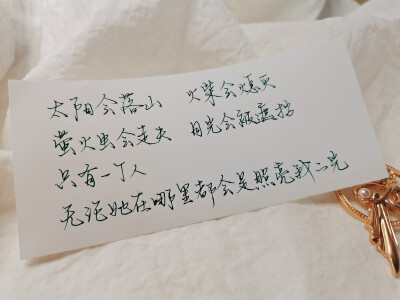 太阳会落山 火柴会熄灭
萤火虫会走失 月光会被遮挡
只有一个人
无论她在哪里都会是照亮我的光